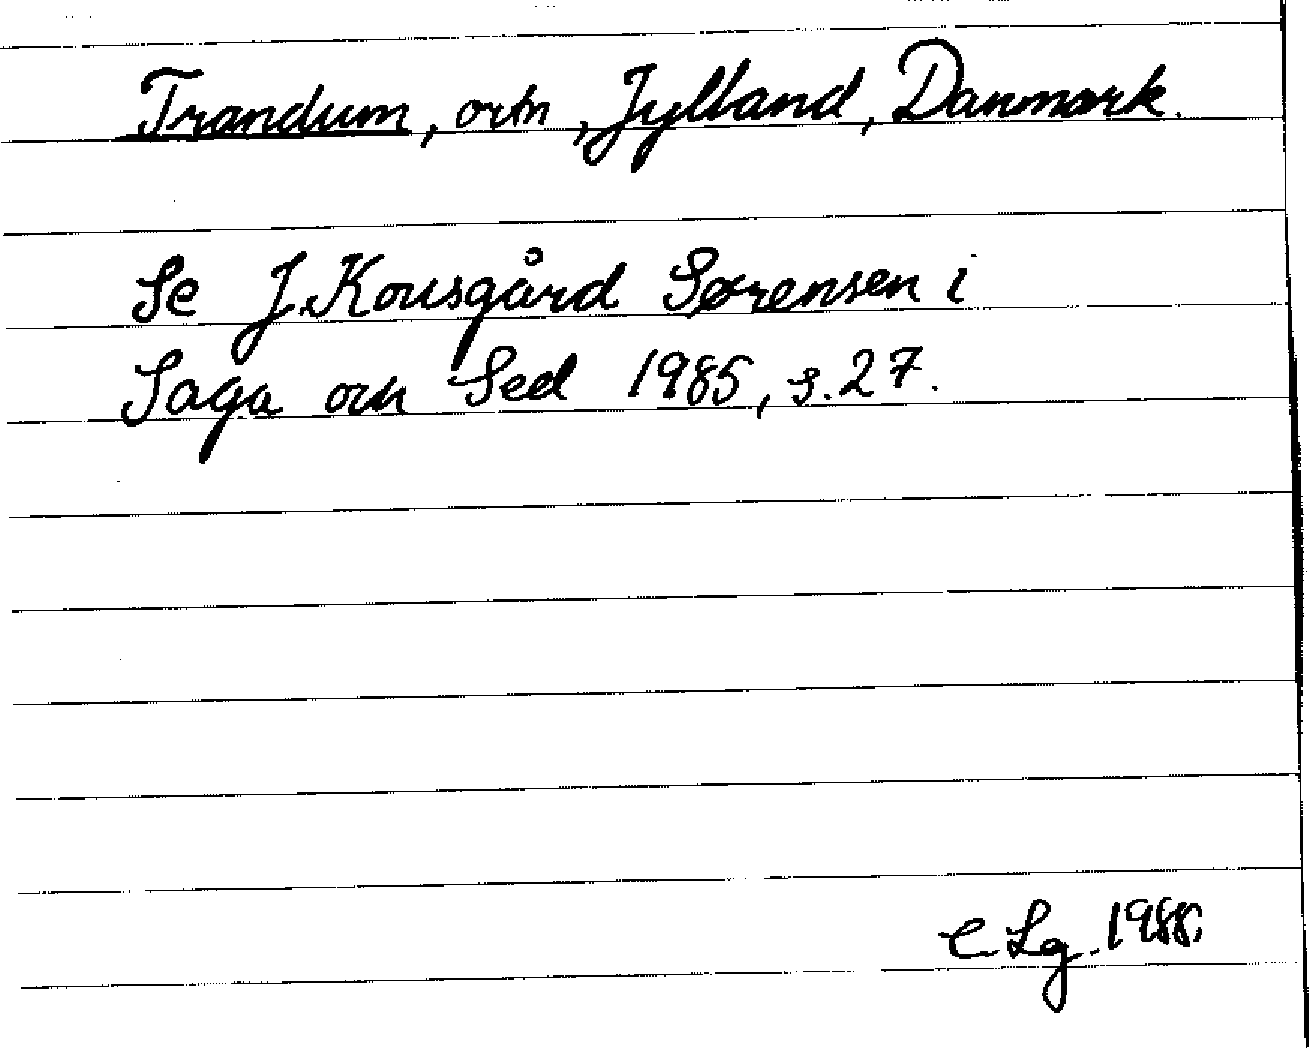 Trandum, ortn, Jylland, Danmark.
Se J. Kousgård Sørensen i
Saga och Sed 1985, s. 27.
C Lg. 1988